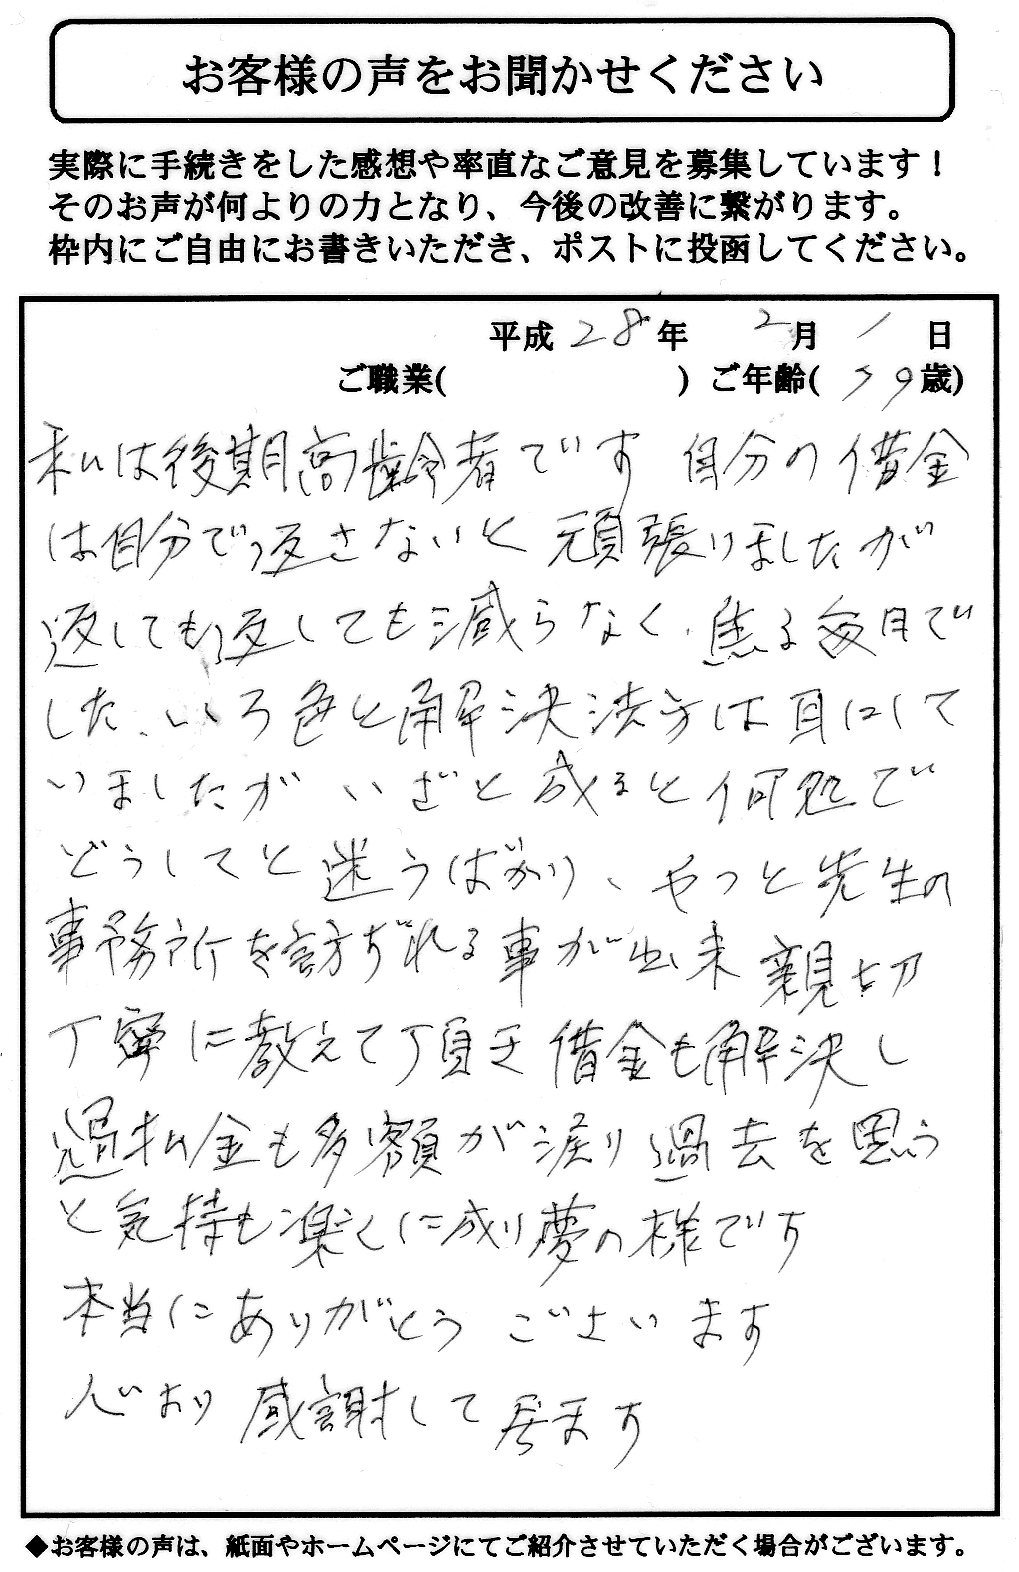 お客様の声をお聞かせください
実際に手続きをした感想や率直なご意見を募集しています！
そのお声が何よりの力となり、今後の改善に繋がります。
枠内にご自由にお書きいただき、ポストに投函してください。
平成 28 年 2 月 1 日
ご職業( ) ご年齢( 79 歳)
私は後期高齢者です 自分の借金
は自分で返さないと 頑張りましたが
返しても返しても減らなく、焦る毎日で
した、いろ色と解決法方は耳にして
いましたが いざと成ると何処で
どうしてと迷うばかり、やっと先生の
事務所を訪ずれる事が出来 親切
丁寧に教えて頂き 借金も解決し
過払金も多額が戻り 過去を思う
と気持も楽くに成り夢の様です
本当にありがとう ございます
心より 感謝して居ます
◆お客様の声は、紙面やホームページにてご紹介させていただく場合がございます。